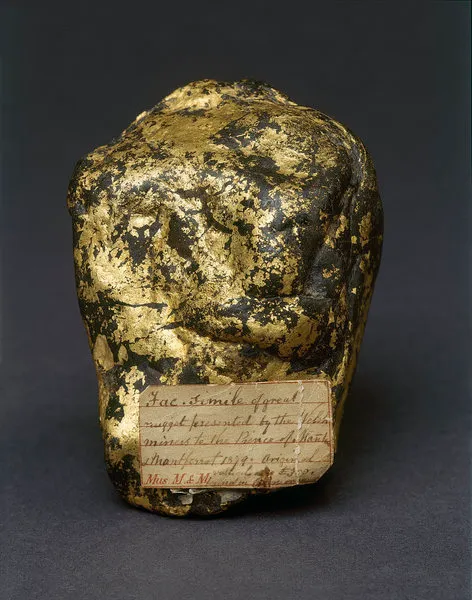 Fac. Simile of great
nugget presented by the Welch
miners to the Prince of
Montferrat 1879. Original
Mus M & M